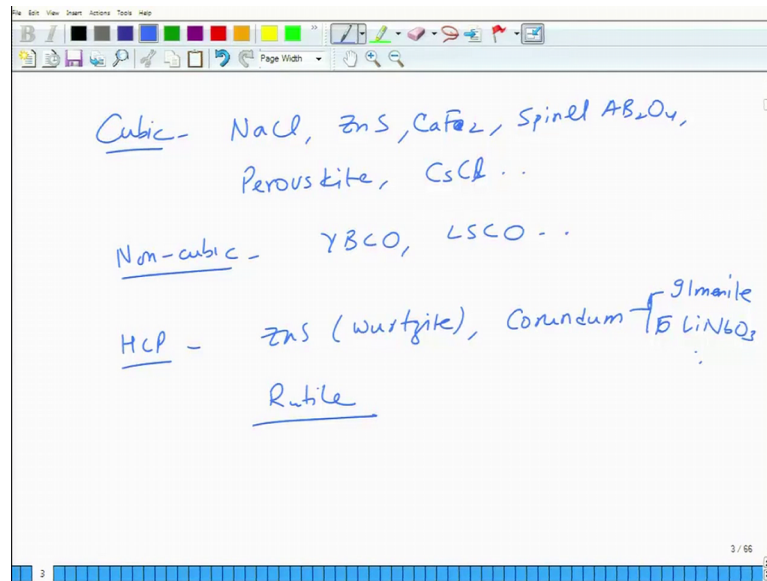 File Edit View Insert Actions Tools Help
B I
Page Width
Cubic - NaCl, ZnS, CaF2, Spinel AB2O4,
Perovskite, CsCl ..
Non-cubic - YBCO, LSCO - ..
HCP - ZnS (Wurtzite), Corundum
Ilmenile
LiNbO3
Rutile
3 / 66
3